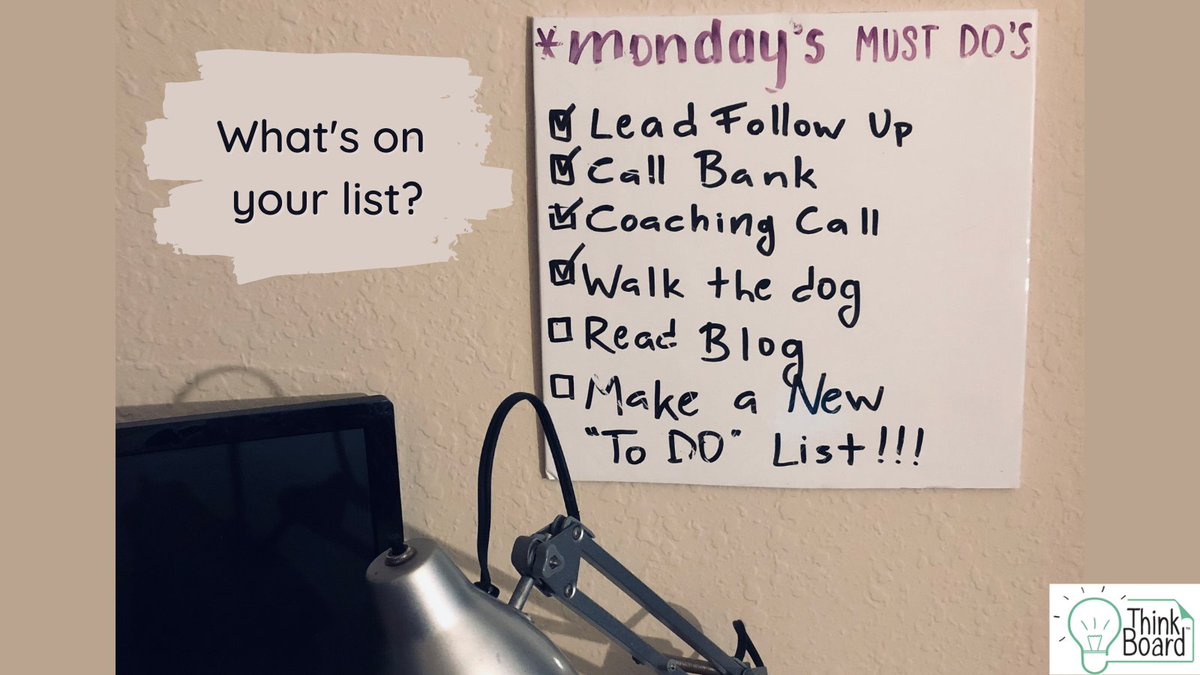 What's on
your list?
*monday's MUST DO'S
Lead Follow Up
Call Bank
Coaching Call
Walk the dog
Read Blog
Make a New
"To DO" List!!!
Think
Board™